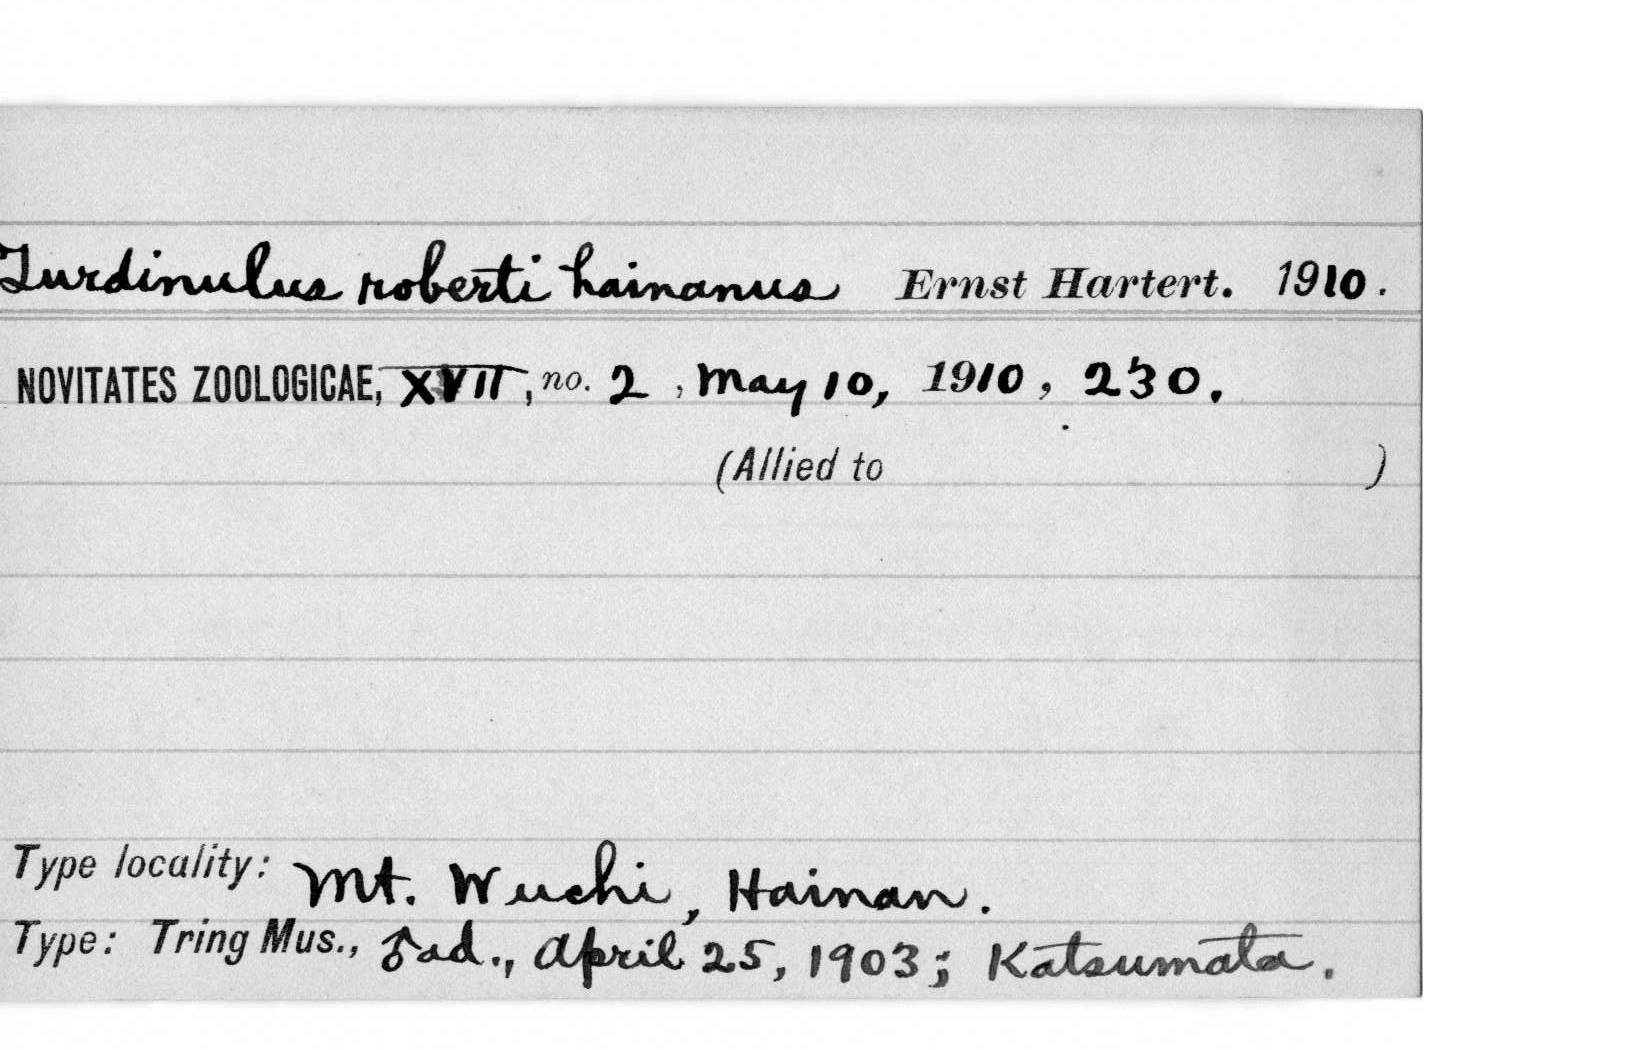 Turdinulus roberti hainanus Ernst Hartert. 1910.
NOVITATES ZOOLOGICAE, XVII, no. 2, May 10, 1910, 230.
(Allied to )
Type locality: Mt. Wuchi, Hainan.
Type: Tring Mus., ♂ ad., April 25, 1903; Katsumata.